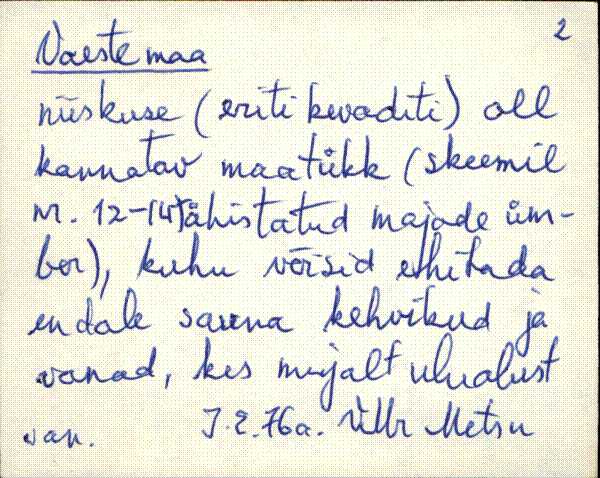 2
Vaeste maa
niiskuse (eriti kevaditi) all
kannatav maatükk (skeemil
nr. 12-14 tähistatud majade üm-
ber), kuhu võisid ehitada
endale sauna kehvikud ja
vanad, kes mujalt ulualust
J. E. 76 a. Ülle Metsu